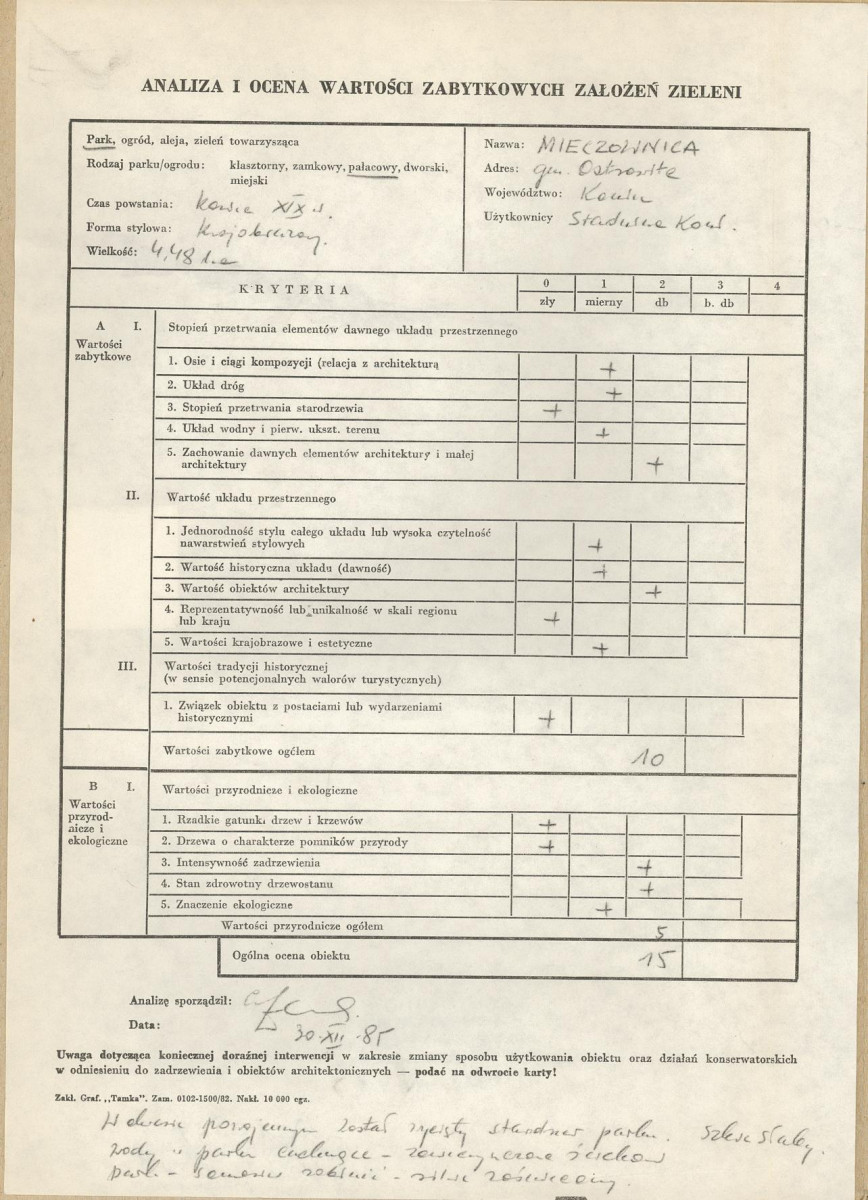 ANALIZA I OCENA WARTOŚCI ZABYTKOWYCH ZAŁOŻEŃ ZIELENI
Park, ogród, aleja, zieleń towarzysząca
Rodzaj parku/ogrodu: klasztorny, zamkowy, pałacowy, dworski, miejski
Czas powstania: koniec XIX w.
Forma stylowa: krajobrazowy.
Wielkość: 4,48 ha
Nazwa: MIECZOWNICA
Adres: gm. Ostrowite
Województwo: Konin
Użytkownicy Stadnina Koni.
KRYTERIA
0 1 2 3 4
zły mierny db b. db
A I. Stopień przetrwania elementów dawnego układu przestrzennego
Wartości zabytkowe
1. Osie i ciągi kompozycji (relacja z architekturą +
2. Układ dróg +
3. Stopień przetrwania starodrzewia +
4. Układ wodny i pierw. ukszt. terenu +
5. Zachowanie dawnych elementów architektury i małej
architektury +
II. Wartość układu przestrzennego
1. Jednorodność stylu całego układu lub wysoka czytelność
nawarstwień stylowych +
2. Wartość historyczna układu (dawność) +
3. Wartość obiektów architektury +
4. Reprezentatywność lub unikalność w skali regionu
lub kraju +
5. Wartości krajobrazowe i estetyczne +
III. Wartości tradycji historycznej
(w sensie potencjonalnych walorów turystycznych)
1. Związek obiektu z postaciami lub wydarzeniami
historycznymi +
Wartości zabytkowe ogółem 10
B I. Wartości przyrodnicze i ekologiczne
Wartości
przyrod-
nicze i
ekologiczne
1. Rzadkie gatunki drzew i krzewów +
2. Drzewa o charakterze pomników przyrody +
3. Intensywność zadrzewienia +
4. Stan zdrowotny drzewostanu +
5. Znaczenie ekologiczne +
Wartości przyrodnicze ogółem 5
Ogólna ocena obiektu 15
Analizę sporządził:
Data: 30.XII.85
Uwaga dotycząca koniecznej doraźnej interwencji w zakresie zmiany sposobu użytkowania obiektu oraz działań konserwatorskich
w odniesieniu do zadrzewienia i obiektów architektonicznych — podać na odwrocie karty!
Zakł. Graf. „Tamka". Zam. 0102-1500/82. Nakł. 10 000 egz.
W okresie powojennym został wycięty starodrzew parku.
wody w parku cuchnące -
park -